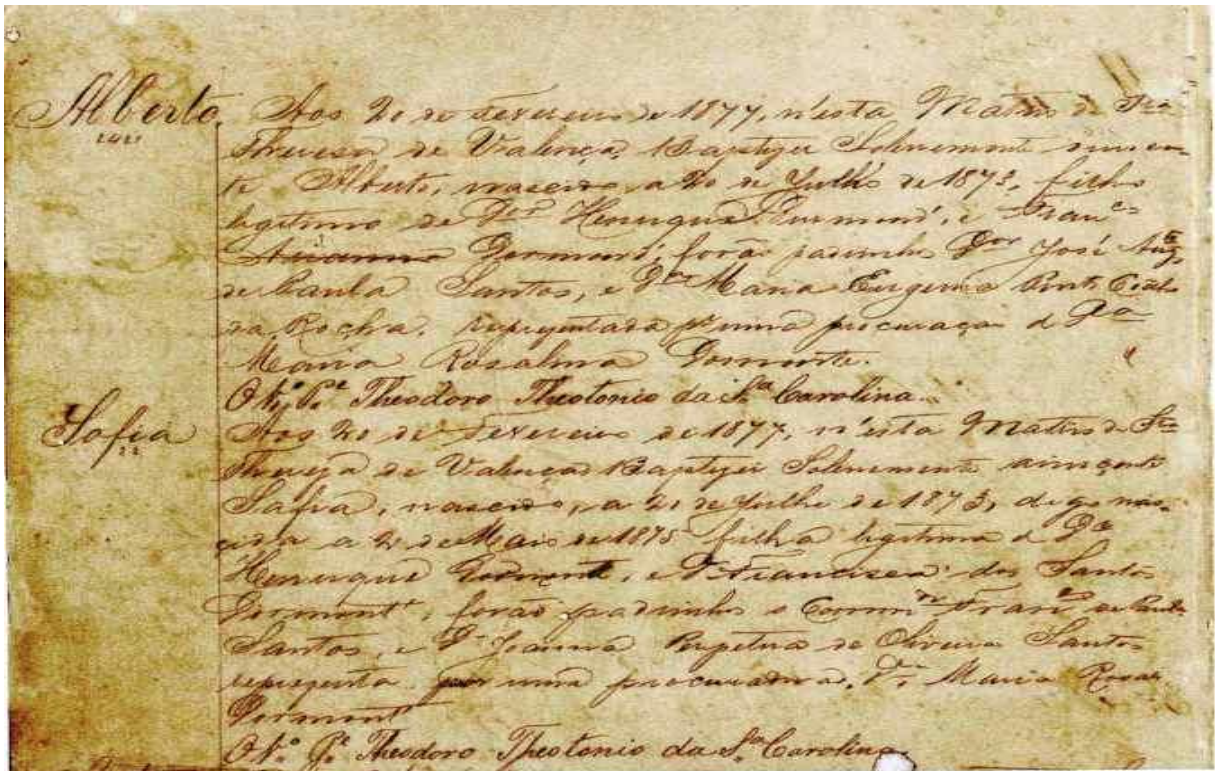 Alberto
Aos 20 de Fevereiro de 1877, n'esta Matris de Sta
Thereza de Valença, Baptizei Solenemente o innocen-
te Alberto, nascido a 20 de Julho de 1873, filho
legitimo de Henrique Dumont, e Franca
Dumont, forão padrinhos José Aug.
de Paula Santos, e Maria Eugenia
da Rocha, representada por uma procuração de Da
Maria Rosalina Dormonte.
Theodoro Theotonio da Sa Carolina.
Sofia
Aos 20 de Fevereiro de 1877, n'esta Matris de Sta
Thereza de Valença Baptizei Solenemente a innocente
Sofia, nascida, a 20 de Julho de 1873, digo nas-
cida a de Maio de 1875 filha legitima de
Henrique Dormont, e Da Francisca dos Santos
Dormont, forão padrinhos o Franco de Paula
Santos, e Da Joanna Perpetua de Oliveira Santos
por uma procuradora, Da Maria Rosa
Dormont
Theodoro Theotonio da Sa Carolina